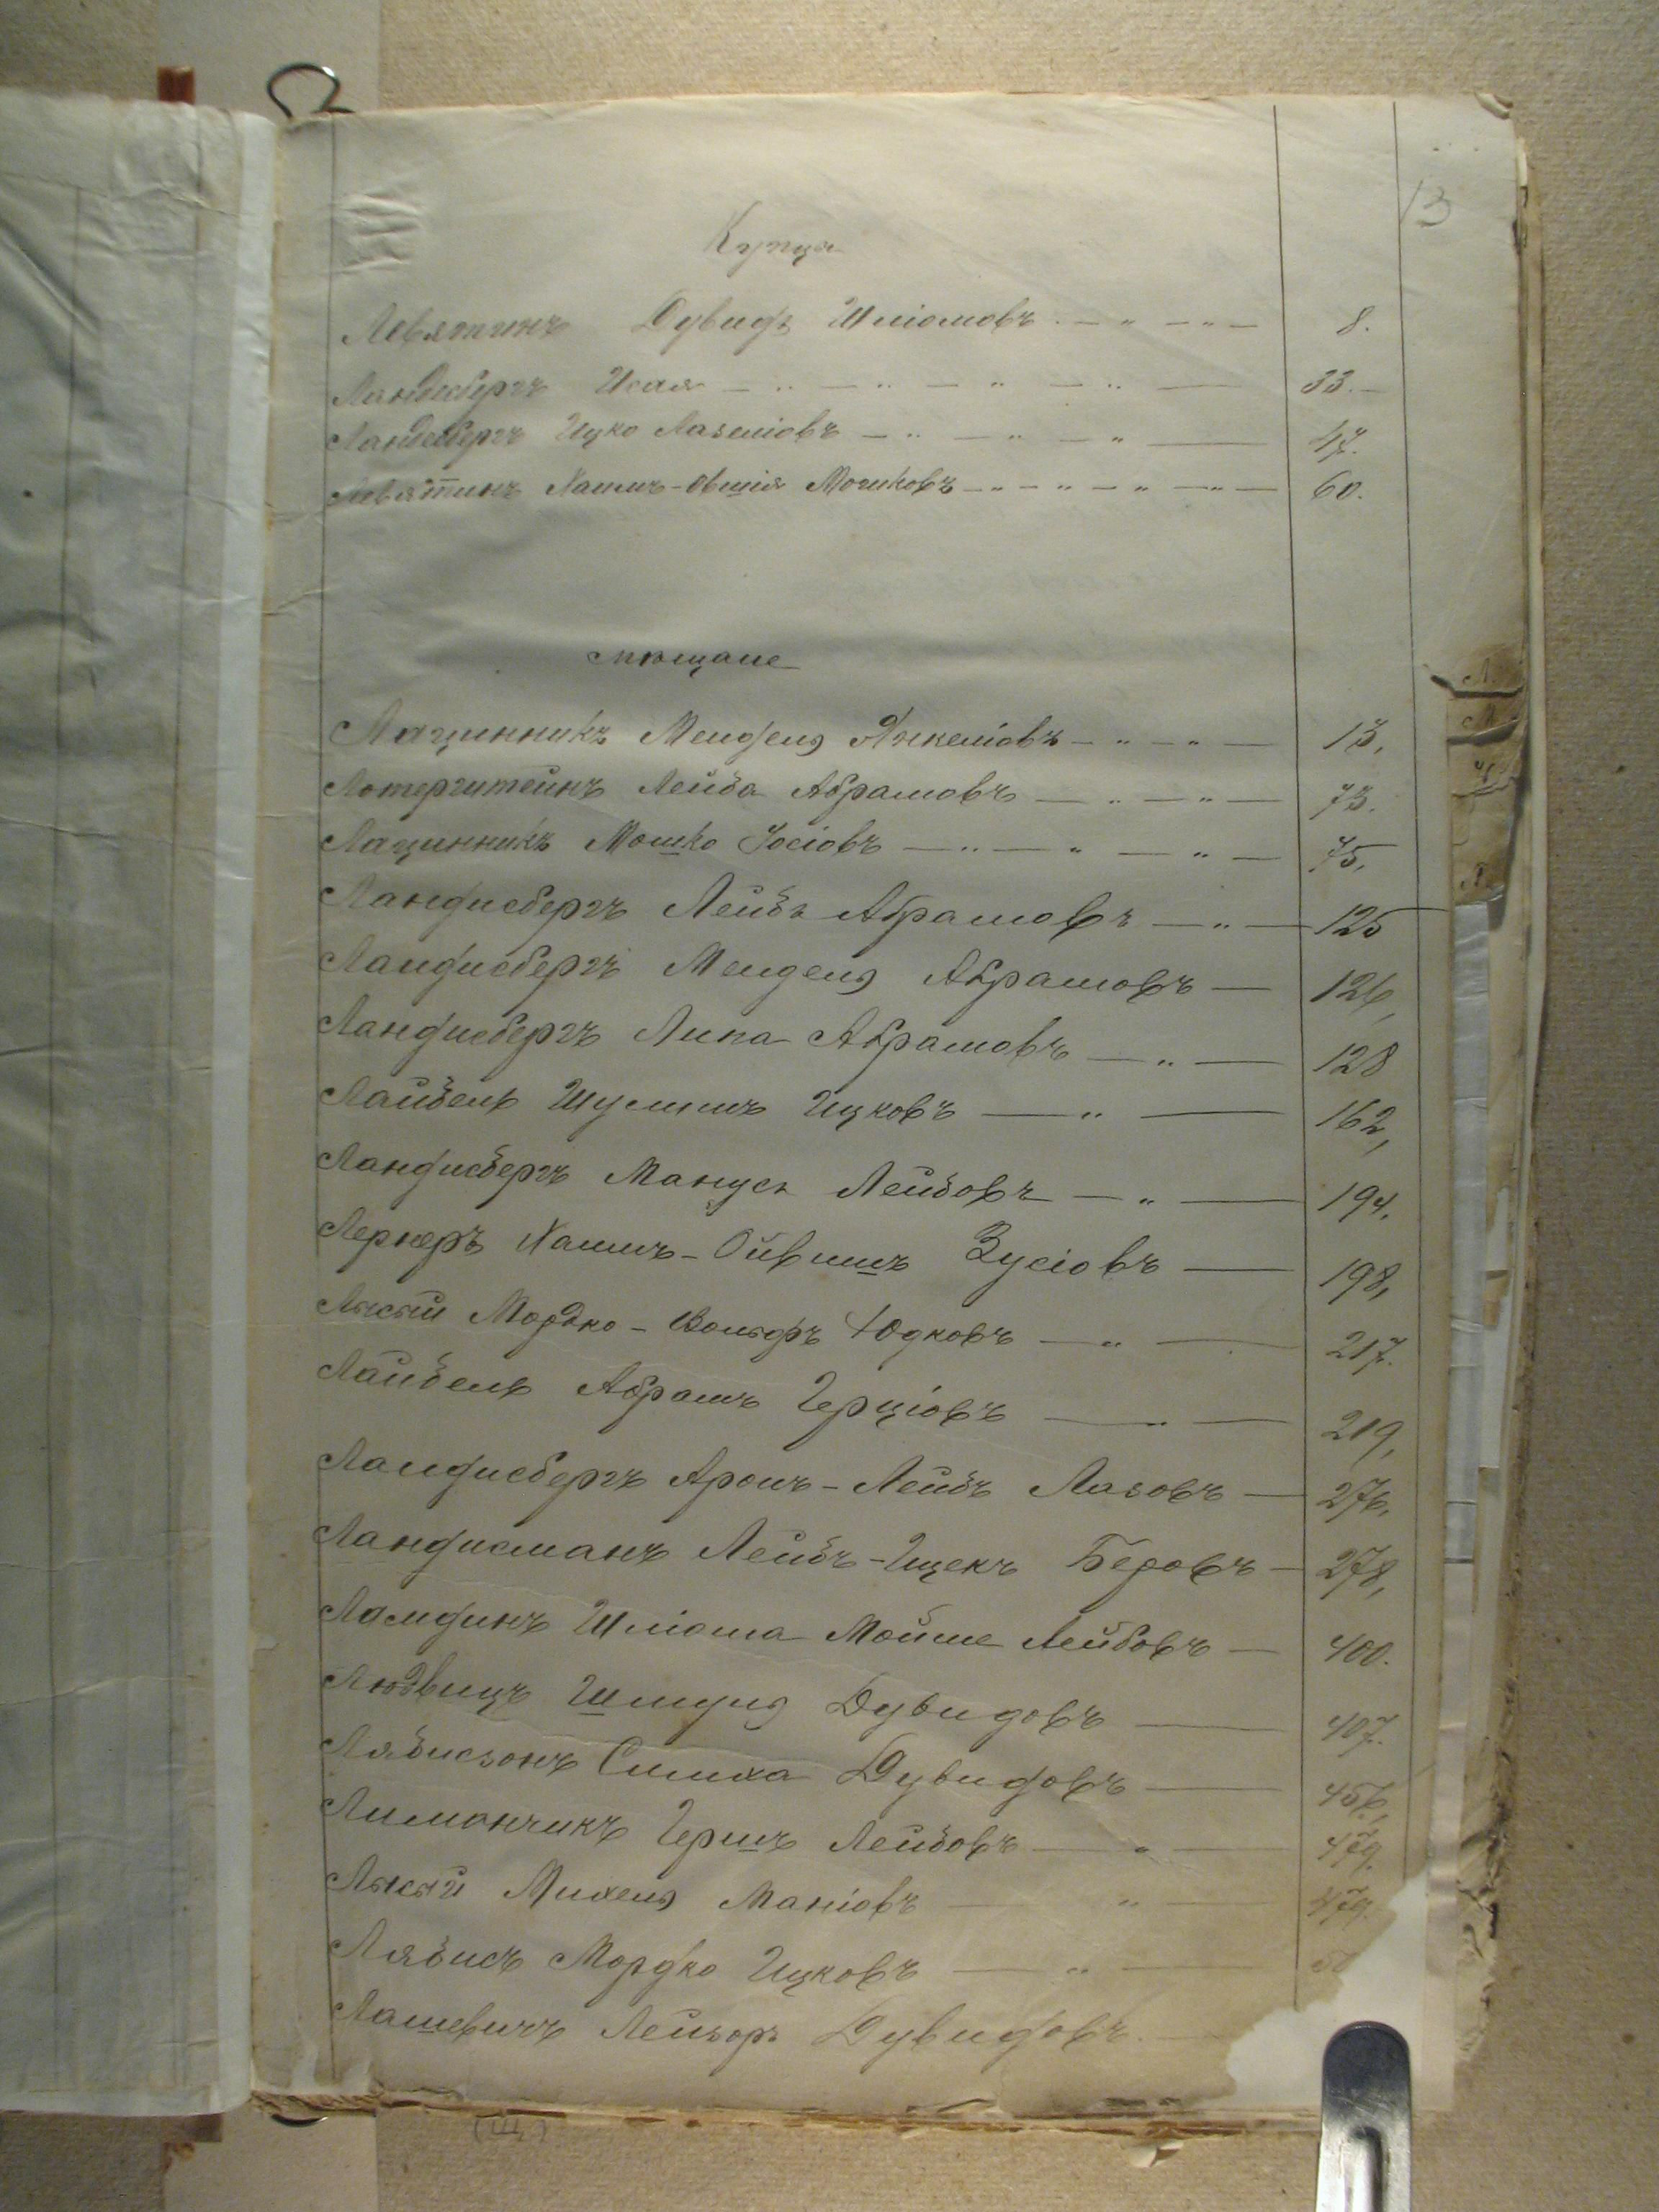 13
Купцы
Левятинъ Дувидъ Шліомовъ 8.
Ландесбергъ Исая 33.
Ландесбергъ Ицко Лазеліовъ 47.
Левятинъ Хаимъ-Овшія Мошковъ 60.
мѣщане
Лащинникъ Мендель Янкеліовъ 13,
Лотерштейнъ Лейба Абрамовъ 73.
Лащинникъ Мошко Іосіовъ 75,
Ландисбергъ Лейбъ Абрамовъ 125
Ландисбергъ Мендель Абрамовъ 126,
Ландисбергъ Липа Абрамовъ 128
Лайбель Шулимъ Ицковъ 162,
Ландисбергъ Манусъ Лейбовъ 194.
Лернеръ Хаимъ-Ойвишъ Зусіовъ 198,
Лысый Мордко-Вольфъ Юдковъ 217.
Лайбель Абрамъ Герціовъ 219,
Ландисбергъ Аронъ-Лейбъ Лазовъ 276,
Ландисманъ Лейбъ-Ицекъ Беровъ 278,
Ламдинъ Шліома Мойше Лейбовъ 400.
Людвицъ Шмуль Дувидовъ 407.
Лябисзонъ Симха Дувидовъ 456,
Лимончикъ Гершъ Лейбовъ 479.
Лысый Михель Маніовъ 479.
Лябисъ Мордко Ицковъ
Лашевичъ Лейзоръ Дувидовъ